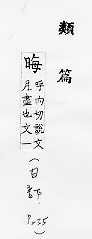 類篇
晦
呼內切說文
月盡也文一
(日部